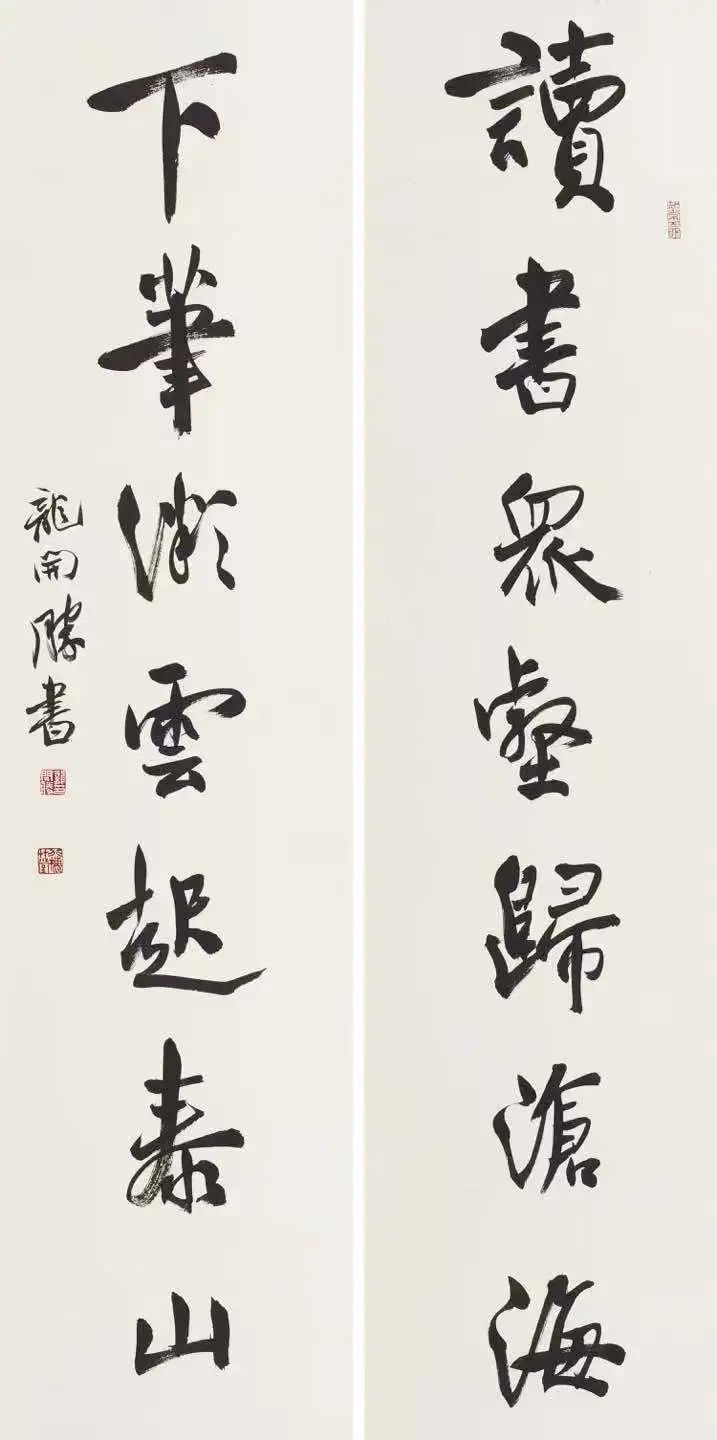 讀書衆壑歸滄海
下筆微雲起泰山
龍開勝書